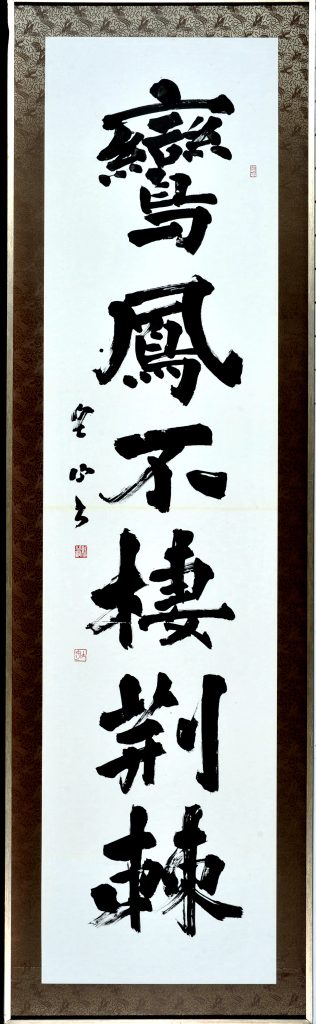 鸞鳳不棲荊棘